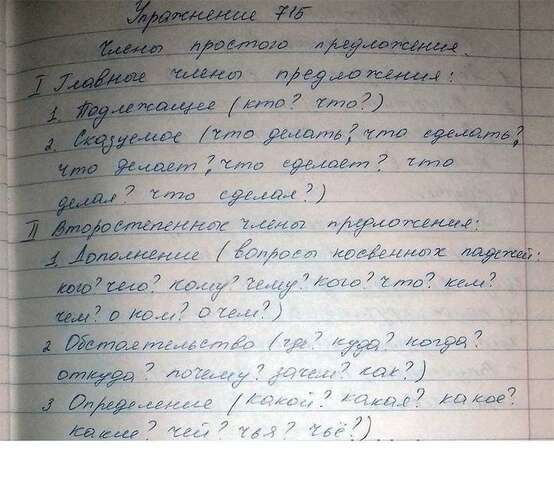 Упражнение 715
Члены простого предложения.
I Главные члены предложения:
1. Подлежащее (кто? что?)
2. Сказуемое (что делать?, что сделать?,
что делает?, что сделает? что
делая? что сделая?)
II Второстепенные члены предложения:
1. Дополнение (вопросы косвенных падежей:
кого? чего? кому? чему? кого? что? кем?
чем? о ком? о чем?)
2 Обстоятельство (где? куда? когда?
откуда? почему? зачем? как?)
3 Определение (какой? какая? какое?
какие? чей? чья? чьё?)